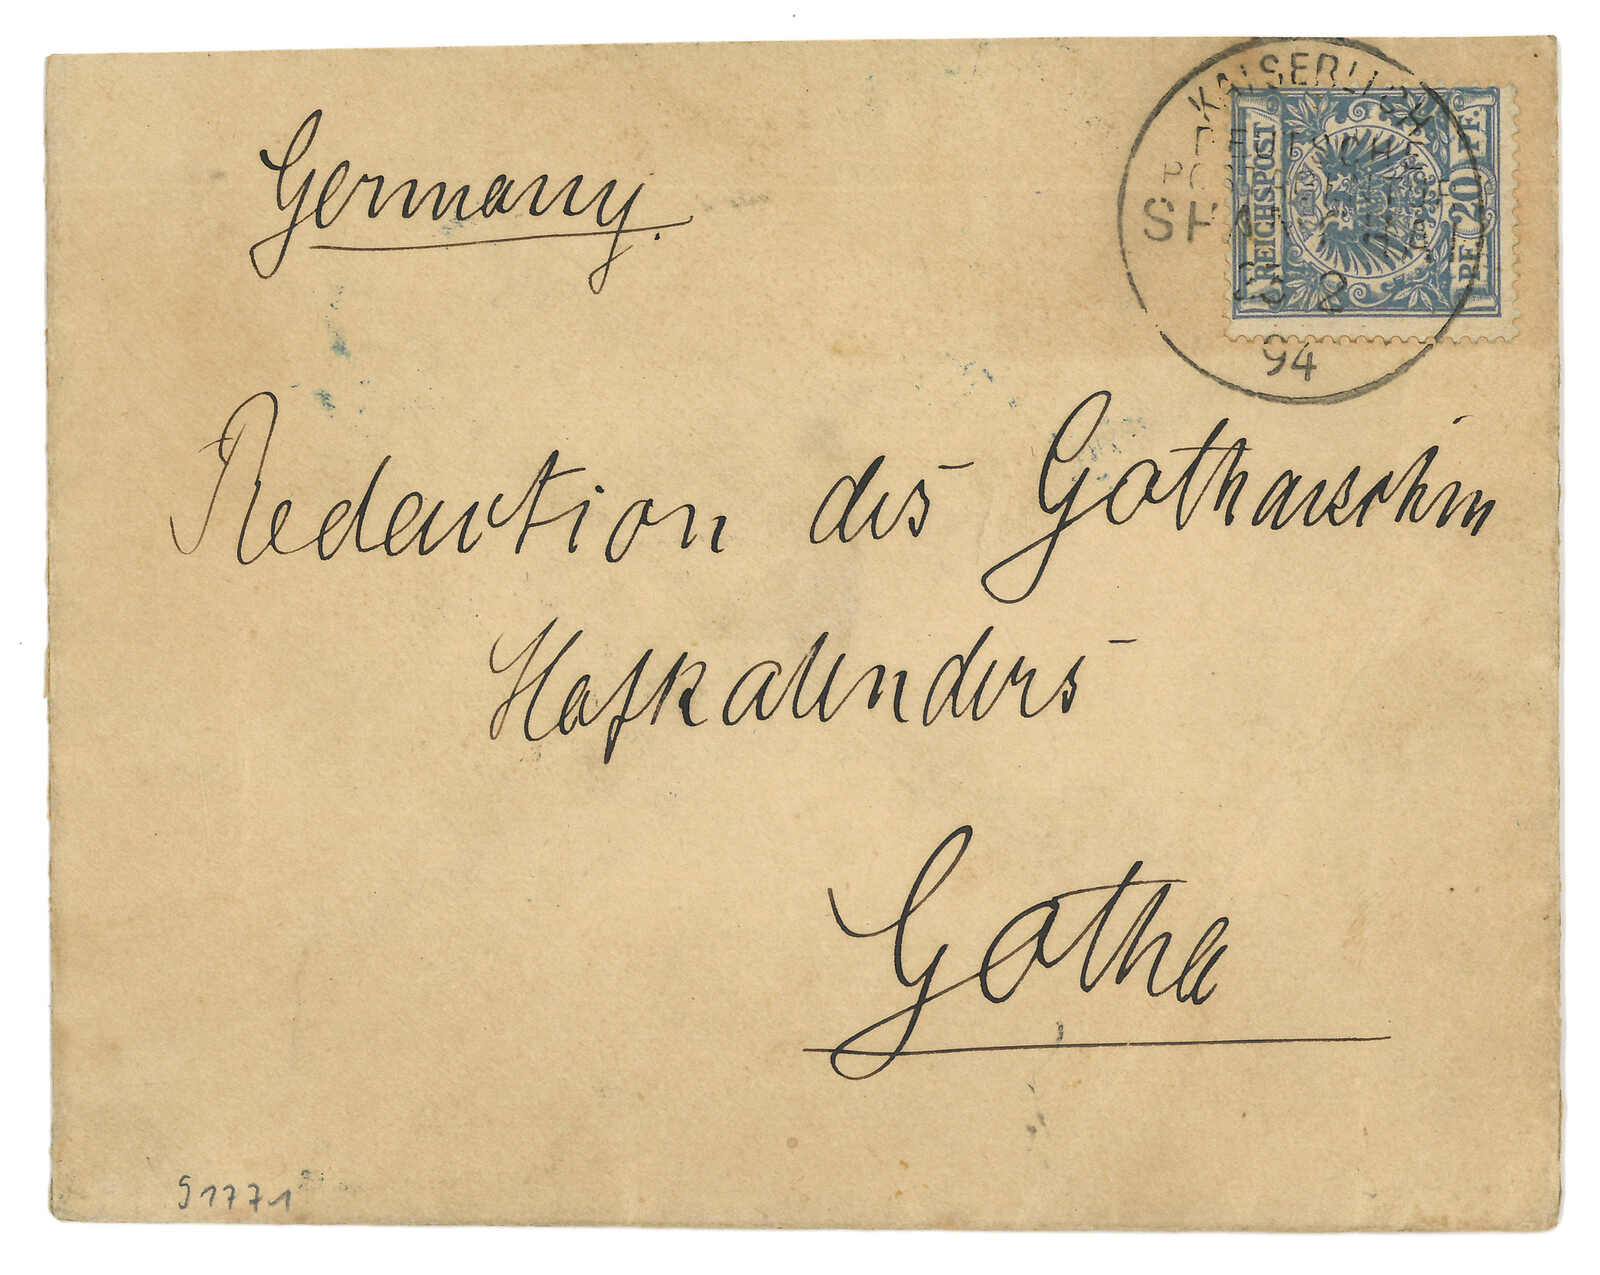 KAISERLICH
DEUTSCHE
SHANGHAI
94
REICHSPOST
PF. 20 PF.
Germany.
Redaction des Gothaischen
Hofkalenders
Gotha
91771